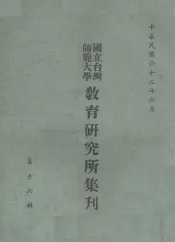 中華民國六十三年六月
國立台灣
師範大學
教育研究所集刊
第十六輯